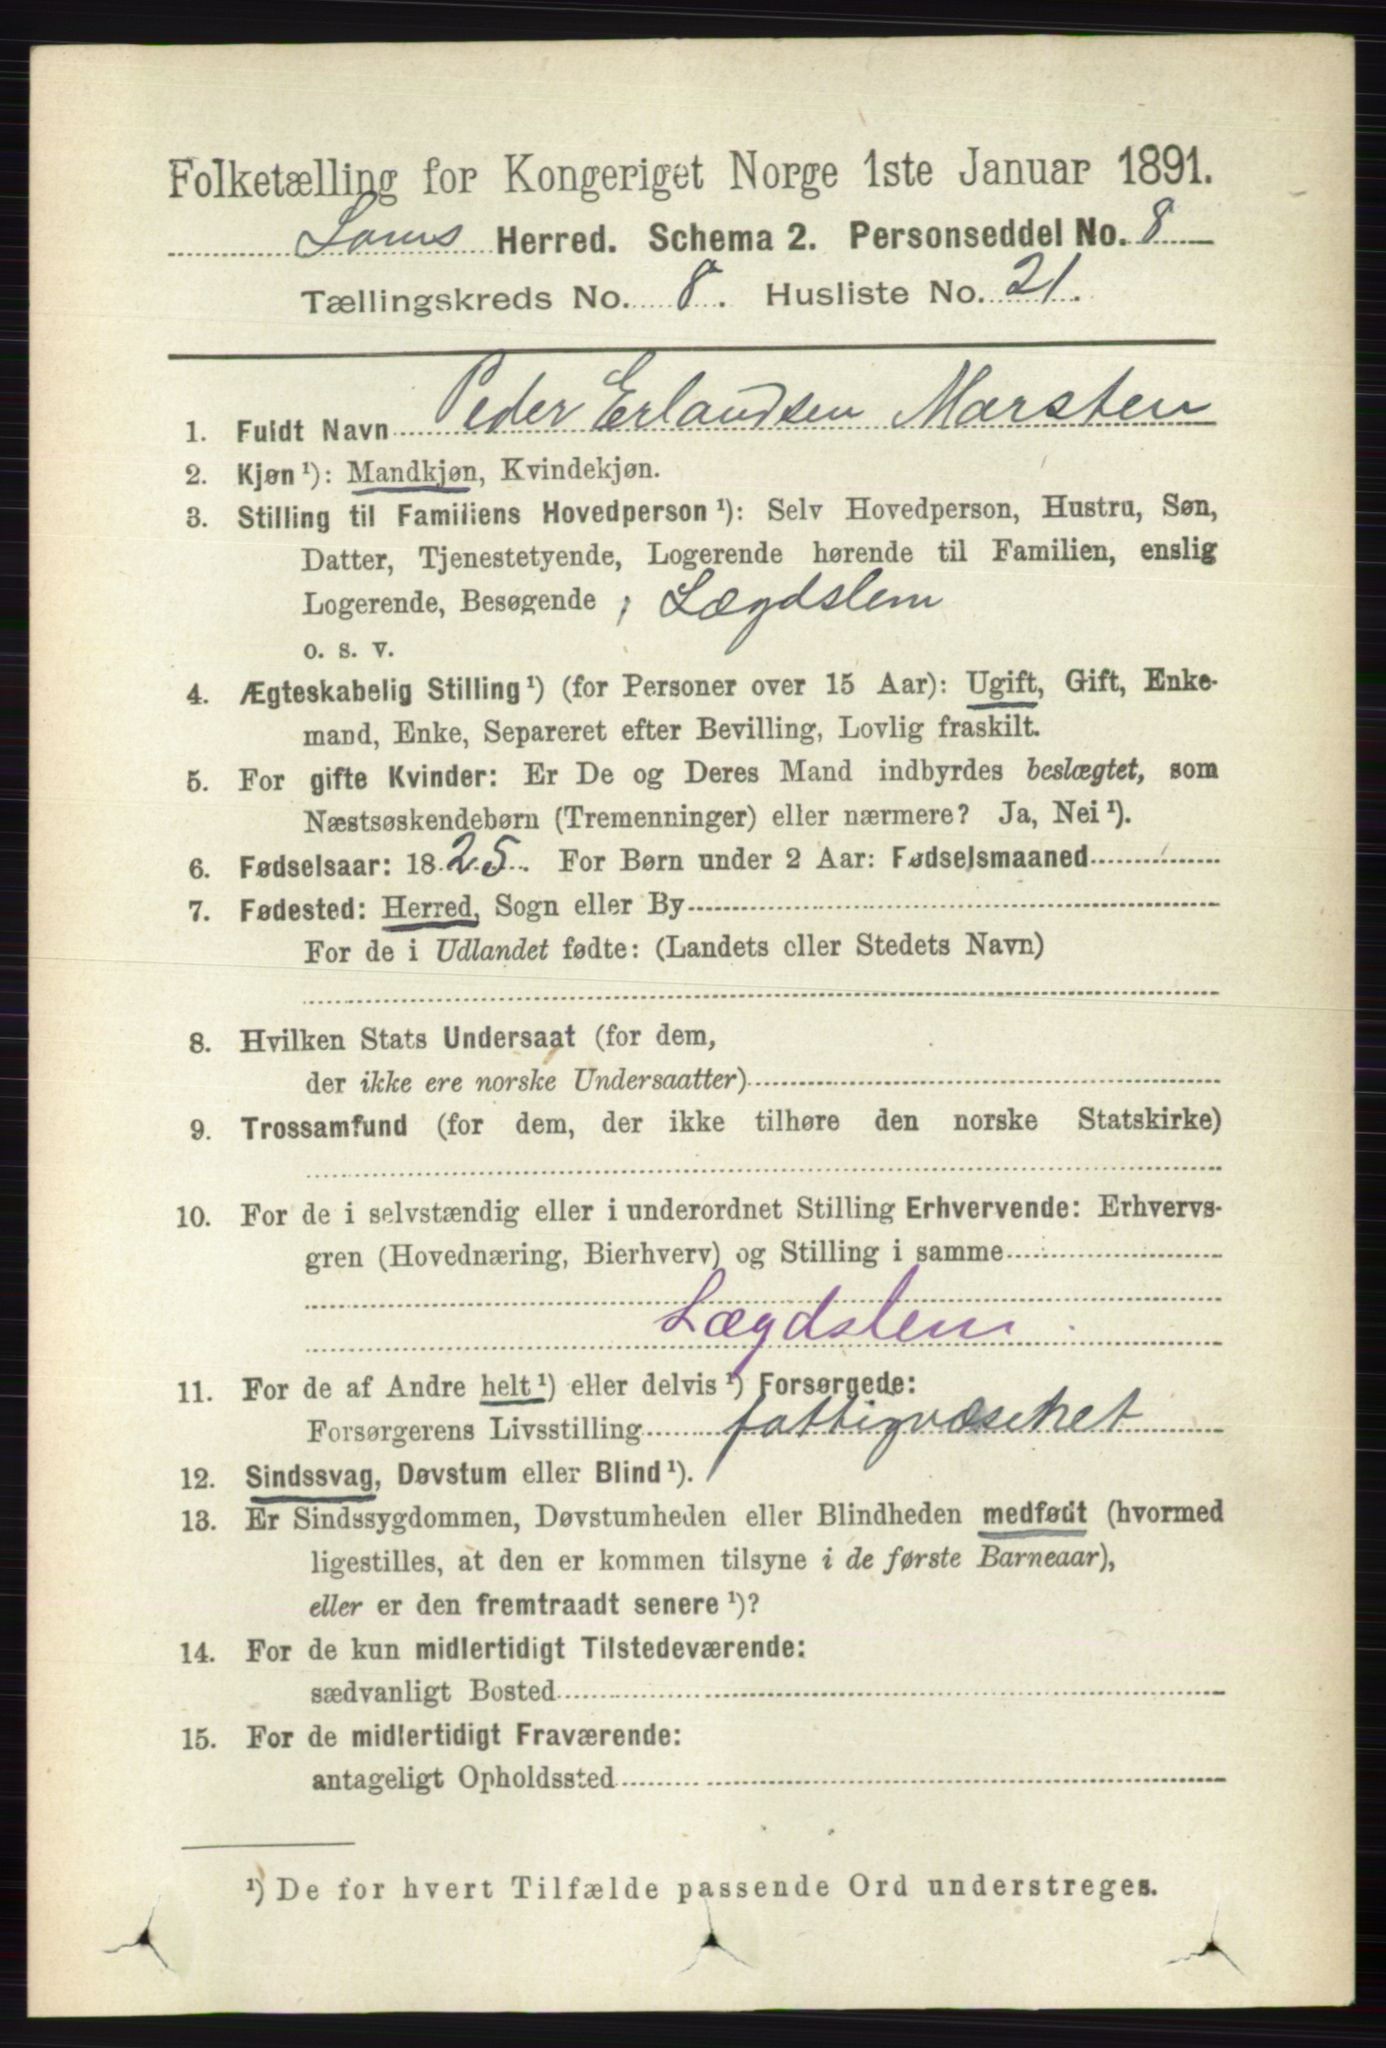 Folketælling for Kongeriget Norge 1ste Januar 1891.
Loms Herred. Schema 2. Personseddel No. 8
Tællingskreds No. 8. Husliste No. 21.
1. Fuldt Navn Peder Erlandsen Marsten
2. Kjøn ¹): Mandkjøn, Kvindekjøn.
3. Stilling til Familiens Hovedperson ¹): Selv Hovedperson, Hustru, Søn,
Datter, Tjenestetyende, Logerende hørende til Familien, enslig
Logerende, Besøgende ; Lægdslem
o. s. v.
4. Ægteskabelig Stilling ¹) (for Personer over 15 Aar): Ugift, Gift, Enke-
mand, Enke, Separeret efter Bevilling, Lovlig fraskilt.
5. For gifte Kvinder: Er De og Deres Mand indbyrdes beslægtet, som
Næstsøskendebørn (Tremenninger) eller nærmere? Ja, Nei ¹).
6. Fødselsaar: 1825. For Børn under 2 Aar: Fødselsmaaned
7. Fødested: Herred, Sogn eller By
For de i Udlandet fødte: (Landets eller Stedets Navn)
8. Hvilken Stats Undersaat (for dem,
der ikke ere norske Undersaatter)
9. Trossamfund (for dem, der ikke tilhøre den norske Statskirke)
10. For de i selvstændig eller i underordnet Stilling Erhvervende: Erhvervs-
gren (Hovednæring, Bierhverv) og Stilling i samme
Lægdslem
11. For de af Andre helt ¹) eller delvis ¹) Forsørgede:
Forsørgerens Livsstilling fattigvæsenet
12. Sindssvag, Døvstum eller Blind ¹).
13. Er Sindssygdommen, Døvstumheden eller Blindheden medfødt (hvormed
ligestilles, at den er kommen tilsyne i de første Barneaar),
eller er den fremtraadt senere ¹)?
14. For de kun midlertidigt Tilstedeværende:
sædvanligt Bosted
15. For de midlertidigt Fraværende:
antageligt Opholdssted
¹) De for hvert Tilfælde passende Ord understreges.